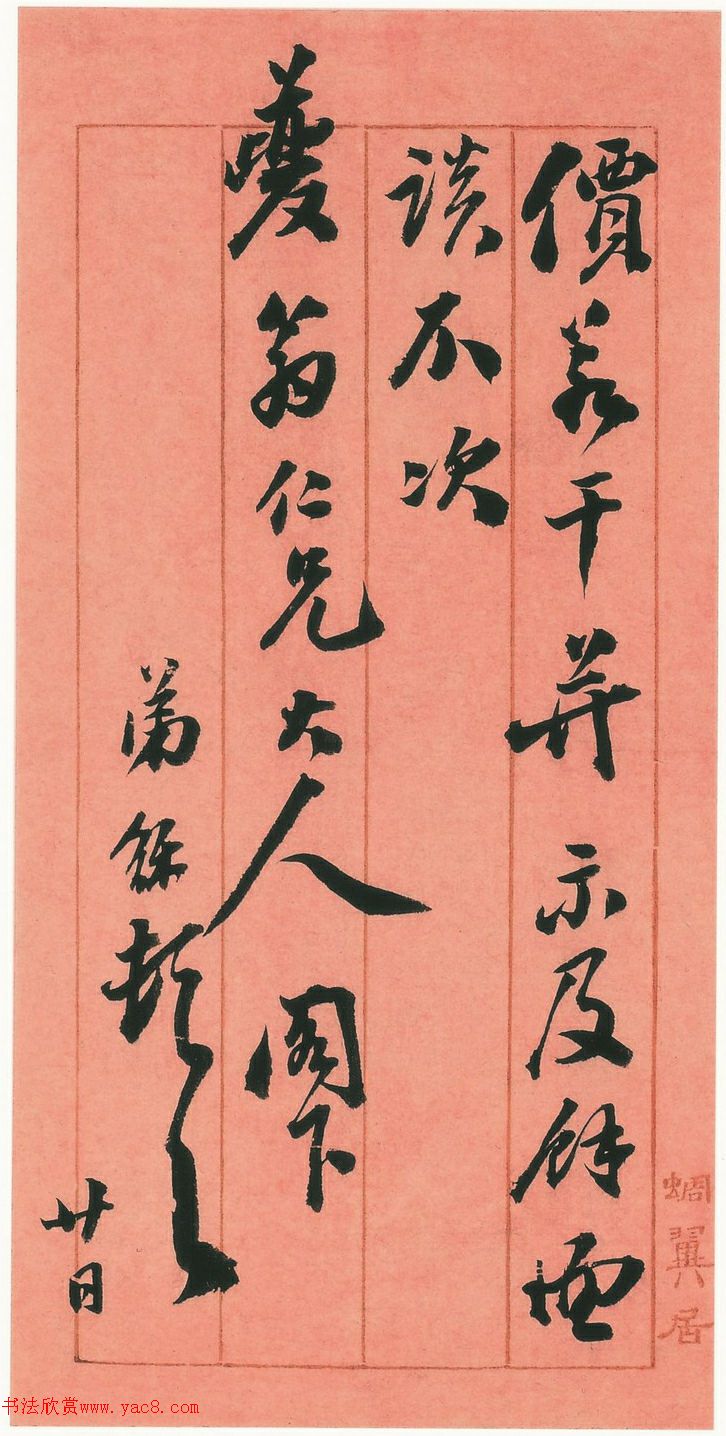 價若干并示及餘面
談不次
夔翁仁兄大人閣下
弟頓首
廿日
蜩翼居
书法欣赏www.yac8.com